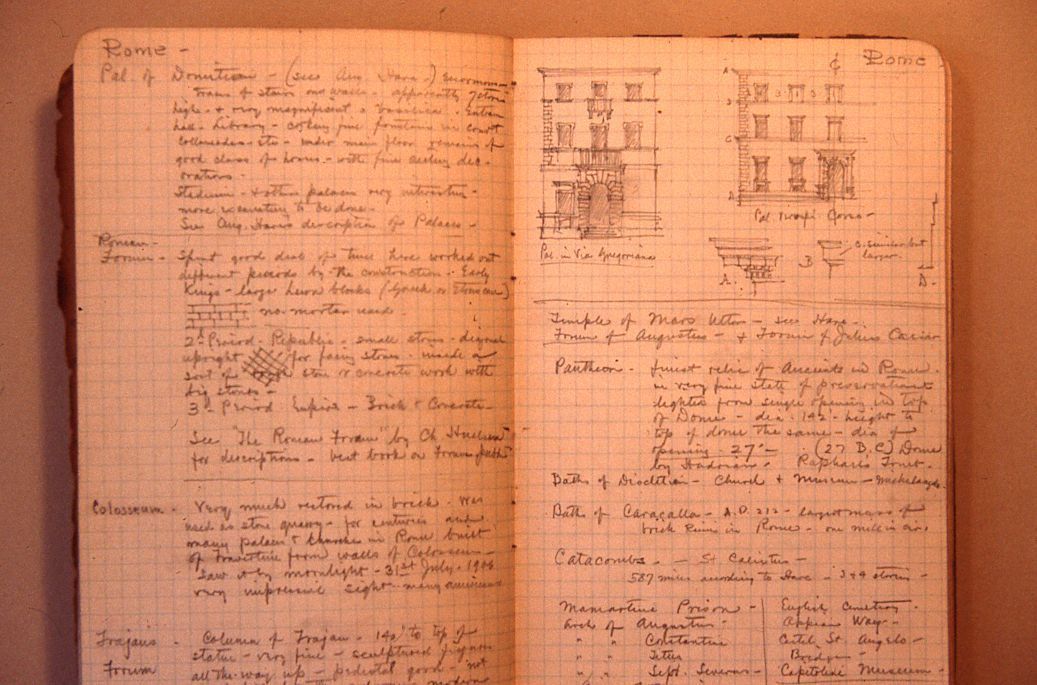 Rome -
Pal. of Domitian - (see Aug. Hare.) enormous
Trans of stairs on walls - apparently 7 stories
high - & very magnificent - basilica - Entrance
hall - Library - fine fountains in court
Collonades - etc - under main floor remains of
good class of houses - with fine ceiling dec-
orations -
Stadium - & other palaces very interesting -
more excavating to be done -
See Aug. Hare's description of Palaces -
Roman
Forum - Spent good deal of time here worked out
different periods by the construction - Early
Kings - large hewn blocks (Greek or Etruscan)
no mortar used.
2d Period - Republic - small stones - diagonal
upright for facing stones - inside a
sort of stone or concrete work with
big stones -
3d Period Empire - Brick & Concrete -
See "The Roman Forum" by Ch. Huelsen
for descriptions - best book on Forum
Colosseum - Very much restored in brick - was
used as stone quarry - for centuries and
many palaces & churches in Rome built
of Travertine from walls of Colosseum -
Saw it by moonlight - 31st July - 1906
very impressive sight - many americans
Trajans - Column of Trajan - 140' to top of
Forum statue - very fine - sculptured figures
all the way up - pedestal good - not
modern
¢ Rome
A
B
C
D
3 3
Pal. in Via Gregoriana
Pal. Corso -
A. B
C. similar but
larger.
D.
Temple of Mars Ultor - see Hare -
Forum of Augustus - & Forum of Julius Caesar
Pantheon - finest relic of Ancients in Rome -
in very fine state of preservation &
lighted from single opening in top
of Dome - dia. 142 - height to
top of dome the same - dia of
opening 27' - (27 B.C) Dome
by Hadrian. Raphaels Tomb -
Baths of Diocletian - Church & Museum - Michelangelo.
Baths of Caracalla - A.D. 212 - largest mass of
brick ruin in Rome - one mile in circ.
Catacombs - St Calixtus -
587 miles according to Hare - 3 & 4 stories -
Mamartine Prison - English Cemetery -
Arch of Augustus - Appian Way -
" " Constantine Castel St. Angelo -
" " Titus Bridges -
" " Sept. Severus - Capitoline Museum -